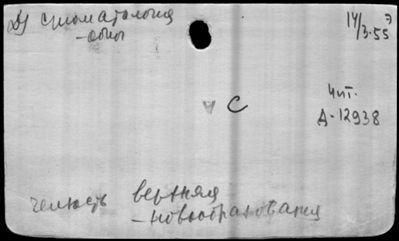 Д) стоматология
14/3.55
С
Чит.
А-12938
челюсть верхняя
- новообразования